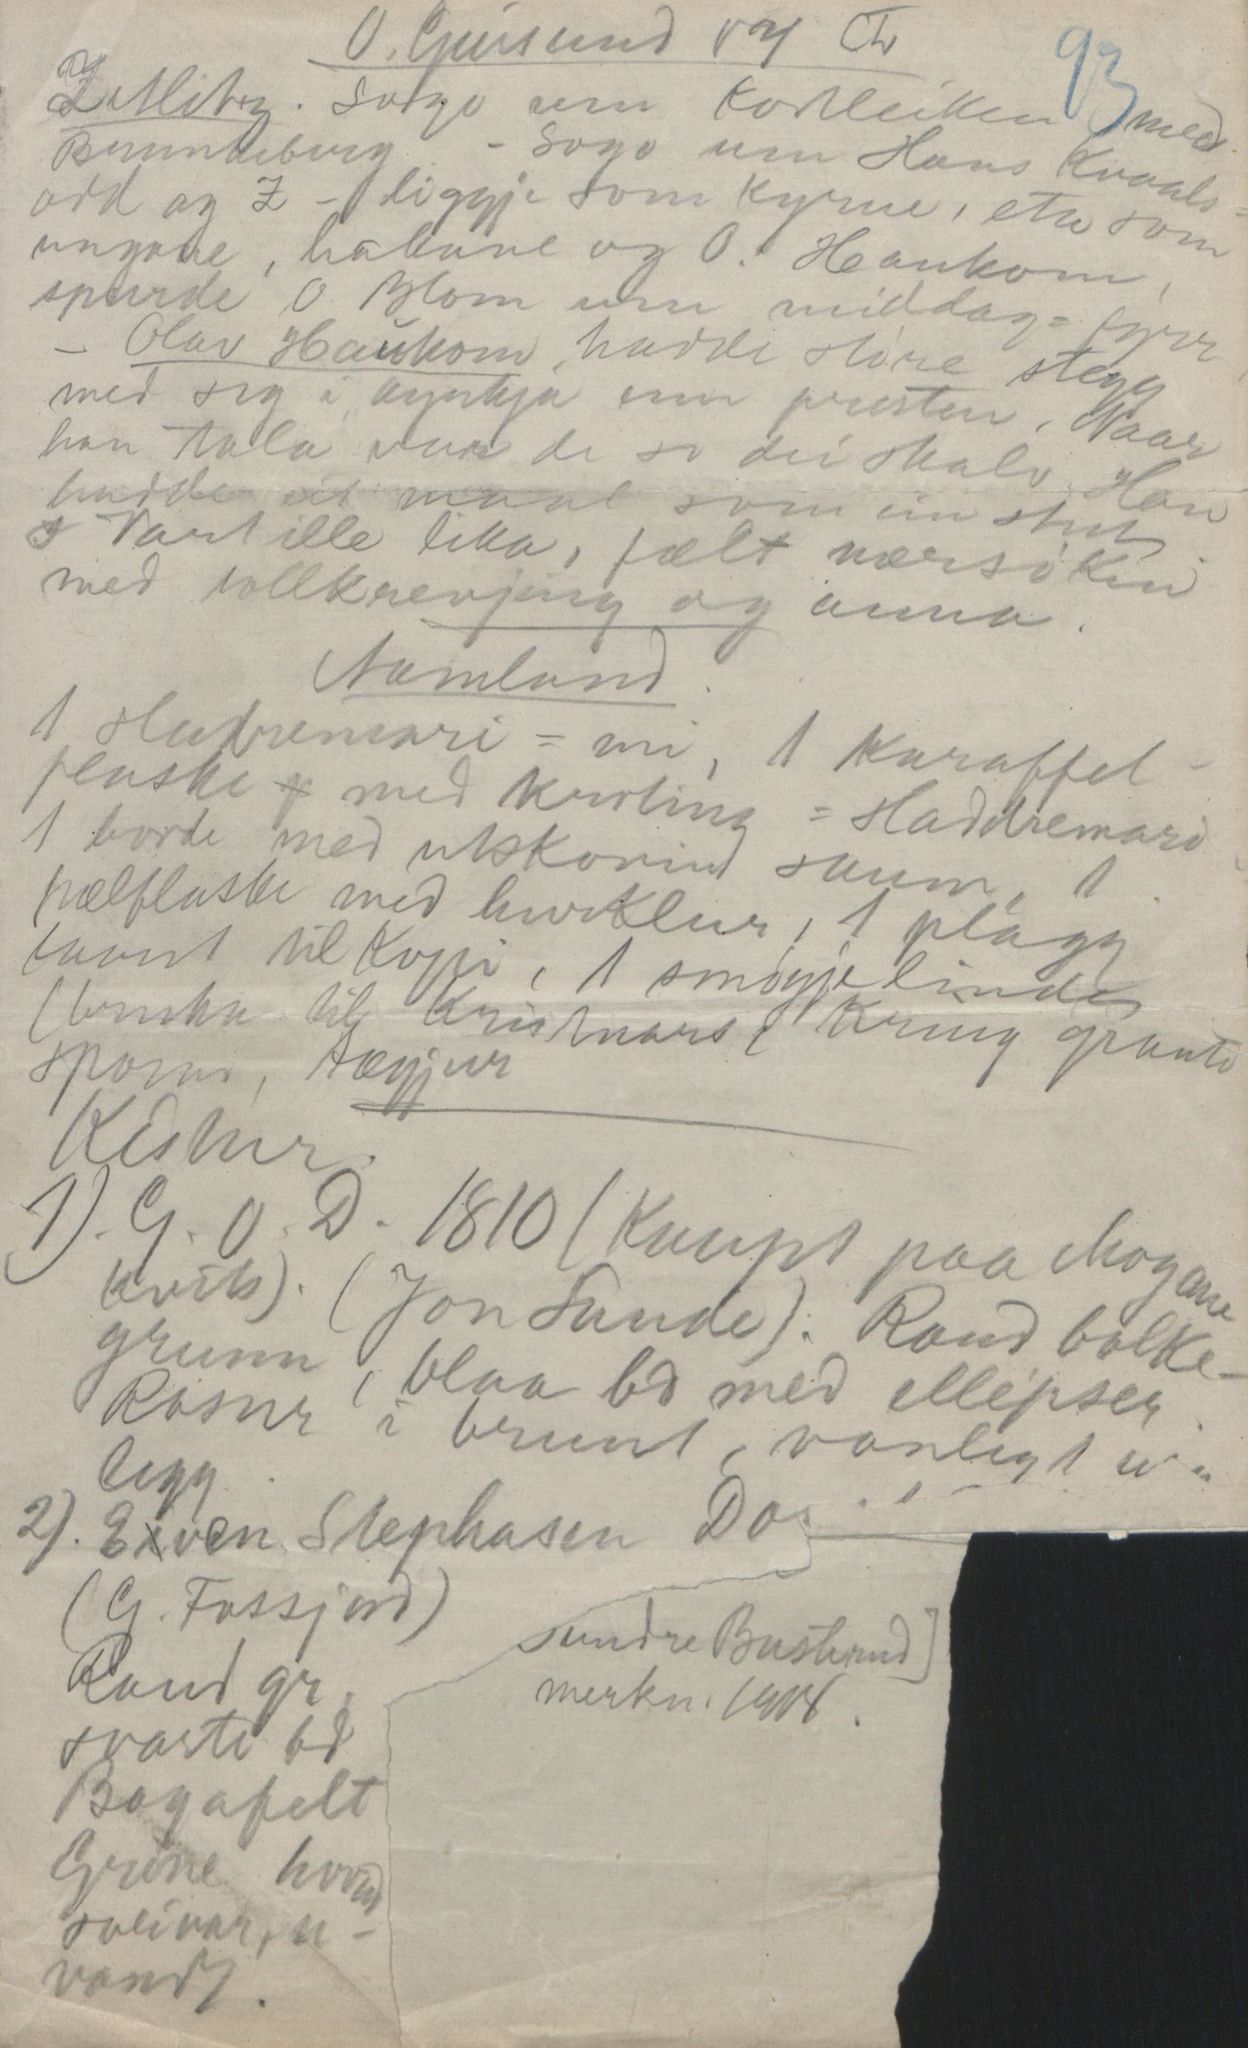 O. Geirsund og Th
93
Zetlitz. Sogo um Kortleiken med
Brunneberg. - Sogo um Hans Kvaals=
odd og Z - liggje som kyrne, eta som
ungane, hakane og O. Haukom,
spurde O Blom um middag= fyrr
- Olav Haukom hadde störe stegg
med seg i kyrkja enn presten. Naar
han tala var de so dei skalv Han
hadde eit maal som ein stut.
Vart ille lika, fælt nærsöken
med tollkrevjing og anna.
Aamlund.
1 = mi, 1 Karaffel-
flaske med kroting = Haddremari
1 borde med utskorind saum, 1
pælflaske med hurklur, 1 plagg
buont til Kopi, 1 smöygjelinde
(bruka til kristnars, kring graut
sponn, tægjur
Kistur.
1). G. O. D. 1810 (Kaupt paa Mogane
kvits). (Jon Sunde). Raud bolke-
grunn, blaa bd med ellipser
Rosur i brunt, vanlegt u-
legg.
2). Eiven Stephasen Da
(G. Fossjord)
Raud gr.
svarte bd
Bogafelt
Gröne hovud
sveivar, u-
vandt.
søndre Busterud]
merkn. 1918.